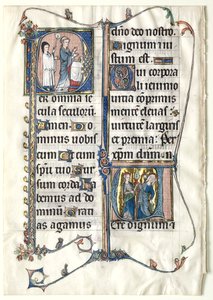 er omnia se
cula seculoru
Amen
ominus uobis
cum
spiritu tuo Sur
sum corda
bemus ad do
minu
ras agamus
duo deo nostro.
ignum et iu
stum est.
ui corpora
li ieiunio
uitia coprimis
mente eleuas:
uirtute largiris
et premia: Per
xpm dnm. n
ere dignum